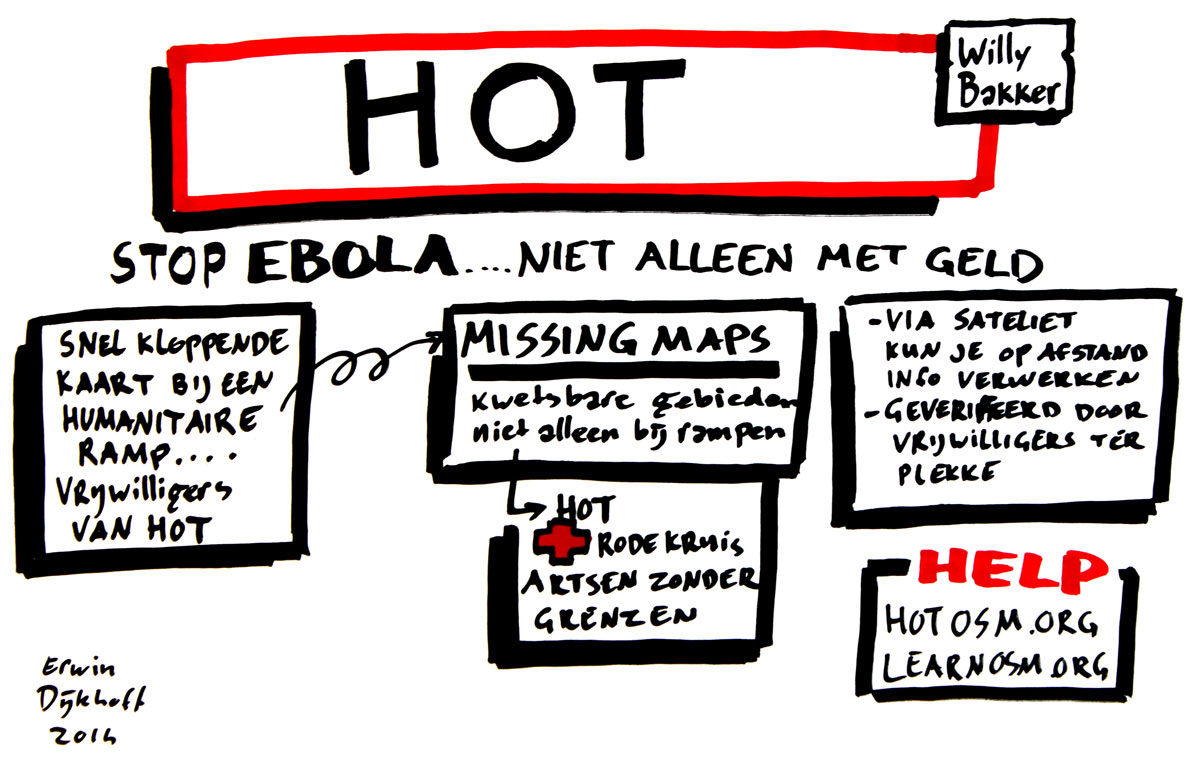 HOT
Willy
Bakker
STOP EBOLA....NIET ALLEEN MET GELD
SNEL KLOPPENDE
KAART BIJ EEN
HUMANITAIRE
RAMP....
VRIJwilligers
VAN HOT
MISSING MAPS
kwetsbare gebieden
niet alleen bij rampen
HOT
RODE KRUIS
ARTSEN ZONDER
GRENZEN
- VIA SATELIET
KUN JE OP AFSTAND
INFO VERWERKEN
- GEVERIFEERD DOOR
VRIJWILLIGERS TER
PLEKKE
HELP
HOTOSM.ORG
LEARNOSM.ORG
Erwin
Dijkhoff
2014